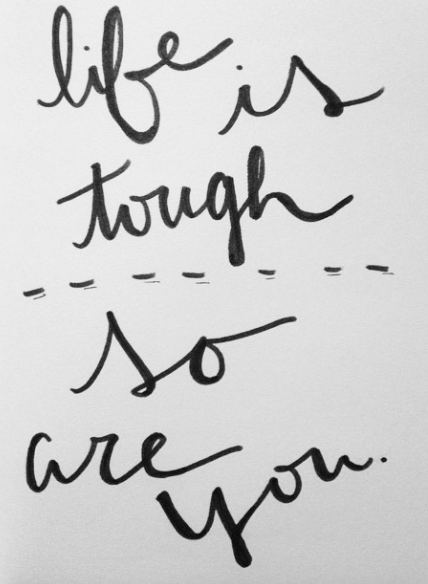 life is
tough
so
are you.